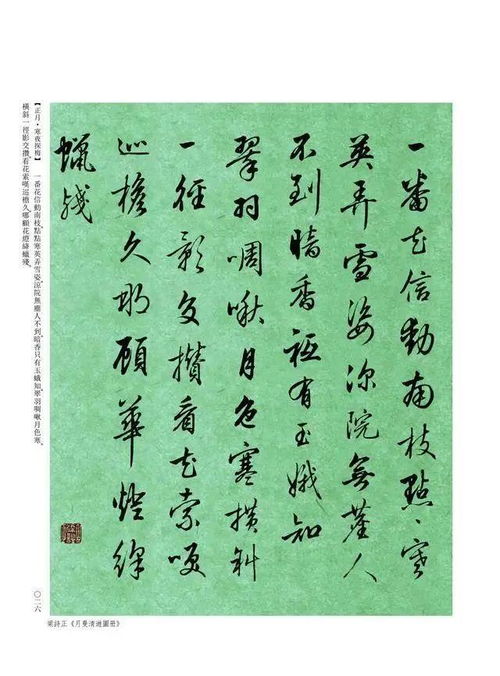 一番花信動南枝點〻寒
英弄雪姿深院無塵人
不到暗香祗有玉娥知
翠羽啁啾月色寒橫斜
一徑影交攢看花索咲
巡檐久那顧華燈絳
蠟殘
【正月·寒夜探梅】 一番花信動南枝,點點寒英弄雪姿。涼院無塵人不到,暗香只有玉蛾知。翠羽啁啾月色寒,
橫斜一徑影交攢。看花素嘆巡檐久,哪顧花燈絳蠟殘。
〇二六
梁詩正《月曼清遊圖冊》